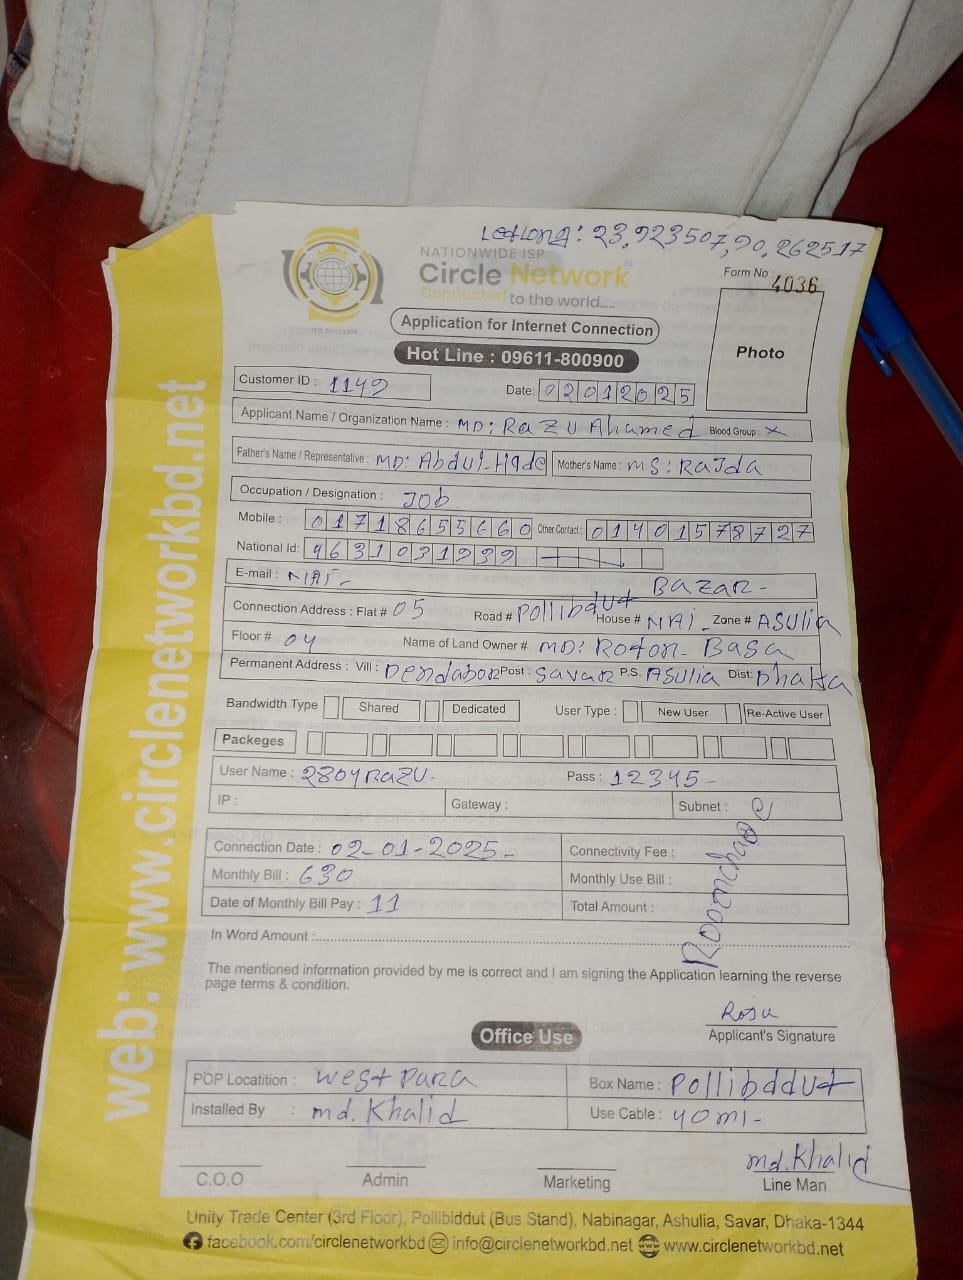 LetLong: 23.923507,90.262517
NATIONWIDE ISP
Circle Network
Connected to the world....
ISO 9001:2015
Form No : 4036
Application for Internet Connection
Hot Line : 09611-800900
Photo
Customer ID : 1149 Date: 02012025
Applicant Name / Organization Name : MD: RaZU Ahamed Blood Group : X
Father's Name / Representative : MD: Abdul-Hade Mother's Name : MS: RaJda
Occupation / Designation : Job
Mobile : 01718655660 Other Contact : 01401578727
National Id: 9631031999
E-mail : NAI-
Connection Address : Flat # 05 Road # Pollibdut BaZaR- House # NAI- Zone # ASUlia
Floor # 04 Name of Land Owner # MD: Roton- Basa
Permanent Address : Vill : Dendabor Post : Savar P.S. ASUlia Dist: Dhaka
Bandwidth Type Shared Dedicated User Type : New User Re-Active User
Packeges
User Name : 2804RaZU- Pass : 12345-
IP : Gateway : Subnet :
Connection Date : 02-01-2025- Connectivity Fee :
Monthly Bill : 630 Monthly Use Bill :
Date of Monthly Bill Pay : 11 Total Amount :
In Word Amount :
The mentioned information provided by me is correct and I am signing the Application learning the reverse
page terms & condition.
Roju
Applicant's Signature
Office Use
POP Locatition : West Para Box Name : Pollibddut
Installed By : md. Khalid Use Cable : 40 ml-
md. Khalid
C.O.O Admin Marketing Line Man
Unity Trade Center (3rd Floor), Pollibiddut (Bus Stand), Nabinagar, Ashulia, Savar, Dhaka-1344
facebook.com/circlenetworkbd info@circlenetworkbd.net www.circlenetworkbd.net
web: www.circlenetworkbd.net